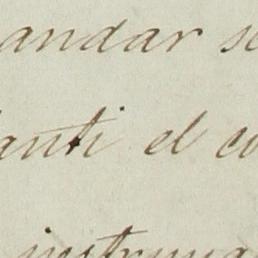 andar se
anti el co
instrum